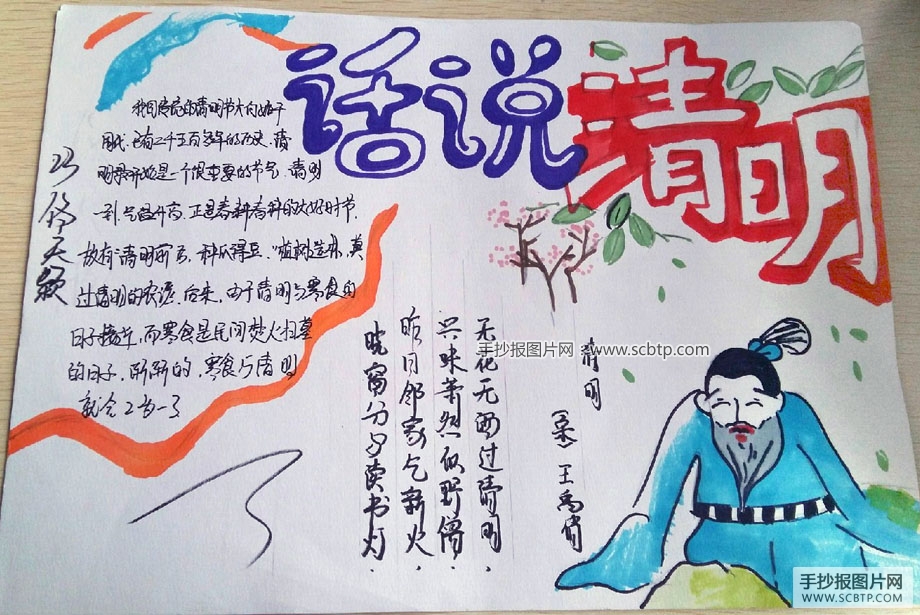 话说清明
我国传统的清明节大约始于
周代,已有二千五百多年的历史,清
明最开始是一个很重要的节气,清明
一到,气温升高,正是春耕春种的大好时节,
故有清明前后,种瓜得豆,"植树造林,莫
过清明的农谚.后来,由于清明与寒食的
日子接近,而寒食是民间禁火扫墓
的日子,渐渐的,寒食与清明
就合2为一了
清明
(宋)王禹偁
无花无酒过清明,
兴味萧然似野僧,
昨日邻家乞新火,
晓窗分与读书灯.
手抄报图片网 www.scbtp.com
手抄报图片网
WWW.SCBTP.COM